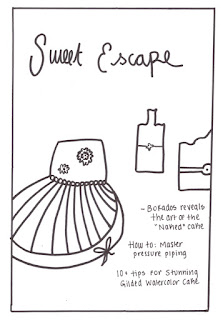 Sweet Escape
~ Bokados reveals
the art of the
"Naked" cake
How to: Master
pressure piping
10+ tips for Stunning
Gilded Watercolor Cake